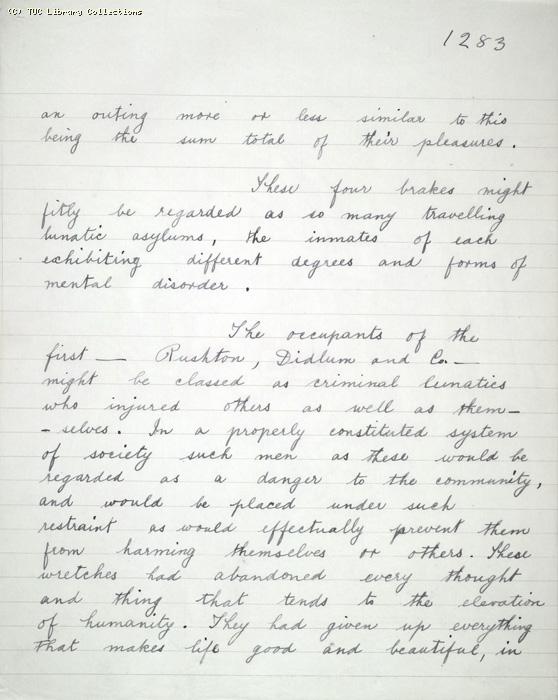 (C) TUC Library Collections
1283
an outing more or less similar to this
being the sum total of their pleasures.
These four brakes might
fitly be regarded as so many travelling
lunatic asylums, the inmates of each
exhibiting different degrees and forms of
mental disorder.
The occupants of the
first — Rushton, Didlum and Co. —
might be classed as criminal lunatics
who injured others as well as them-
-selves. In a properly constituted system
of society such men as these would be
regarded as a danger to the community,
and would be placed under such
restraint as would effectually prevent them
from harming themselves or others. These
wretches had abandoned every thought
and thing that tends to the elevation
of humanity. They had given up everything
that makes life good and beautiful, in